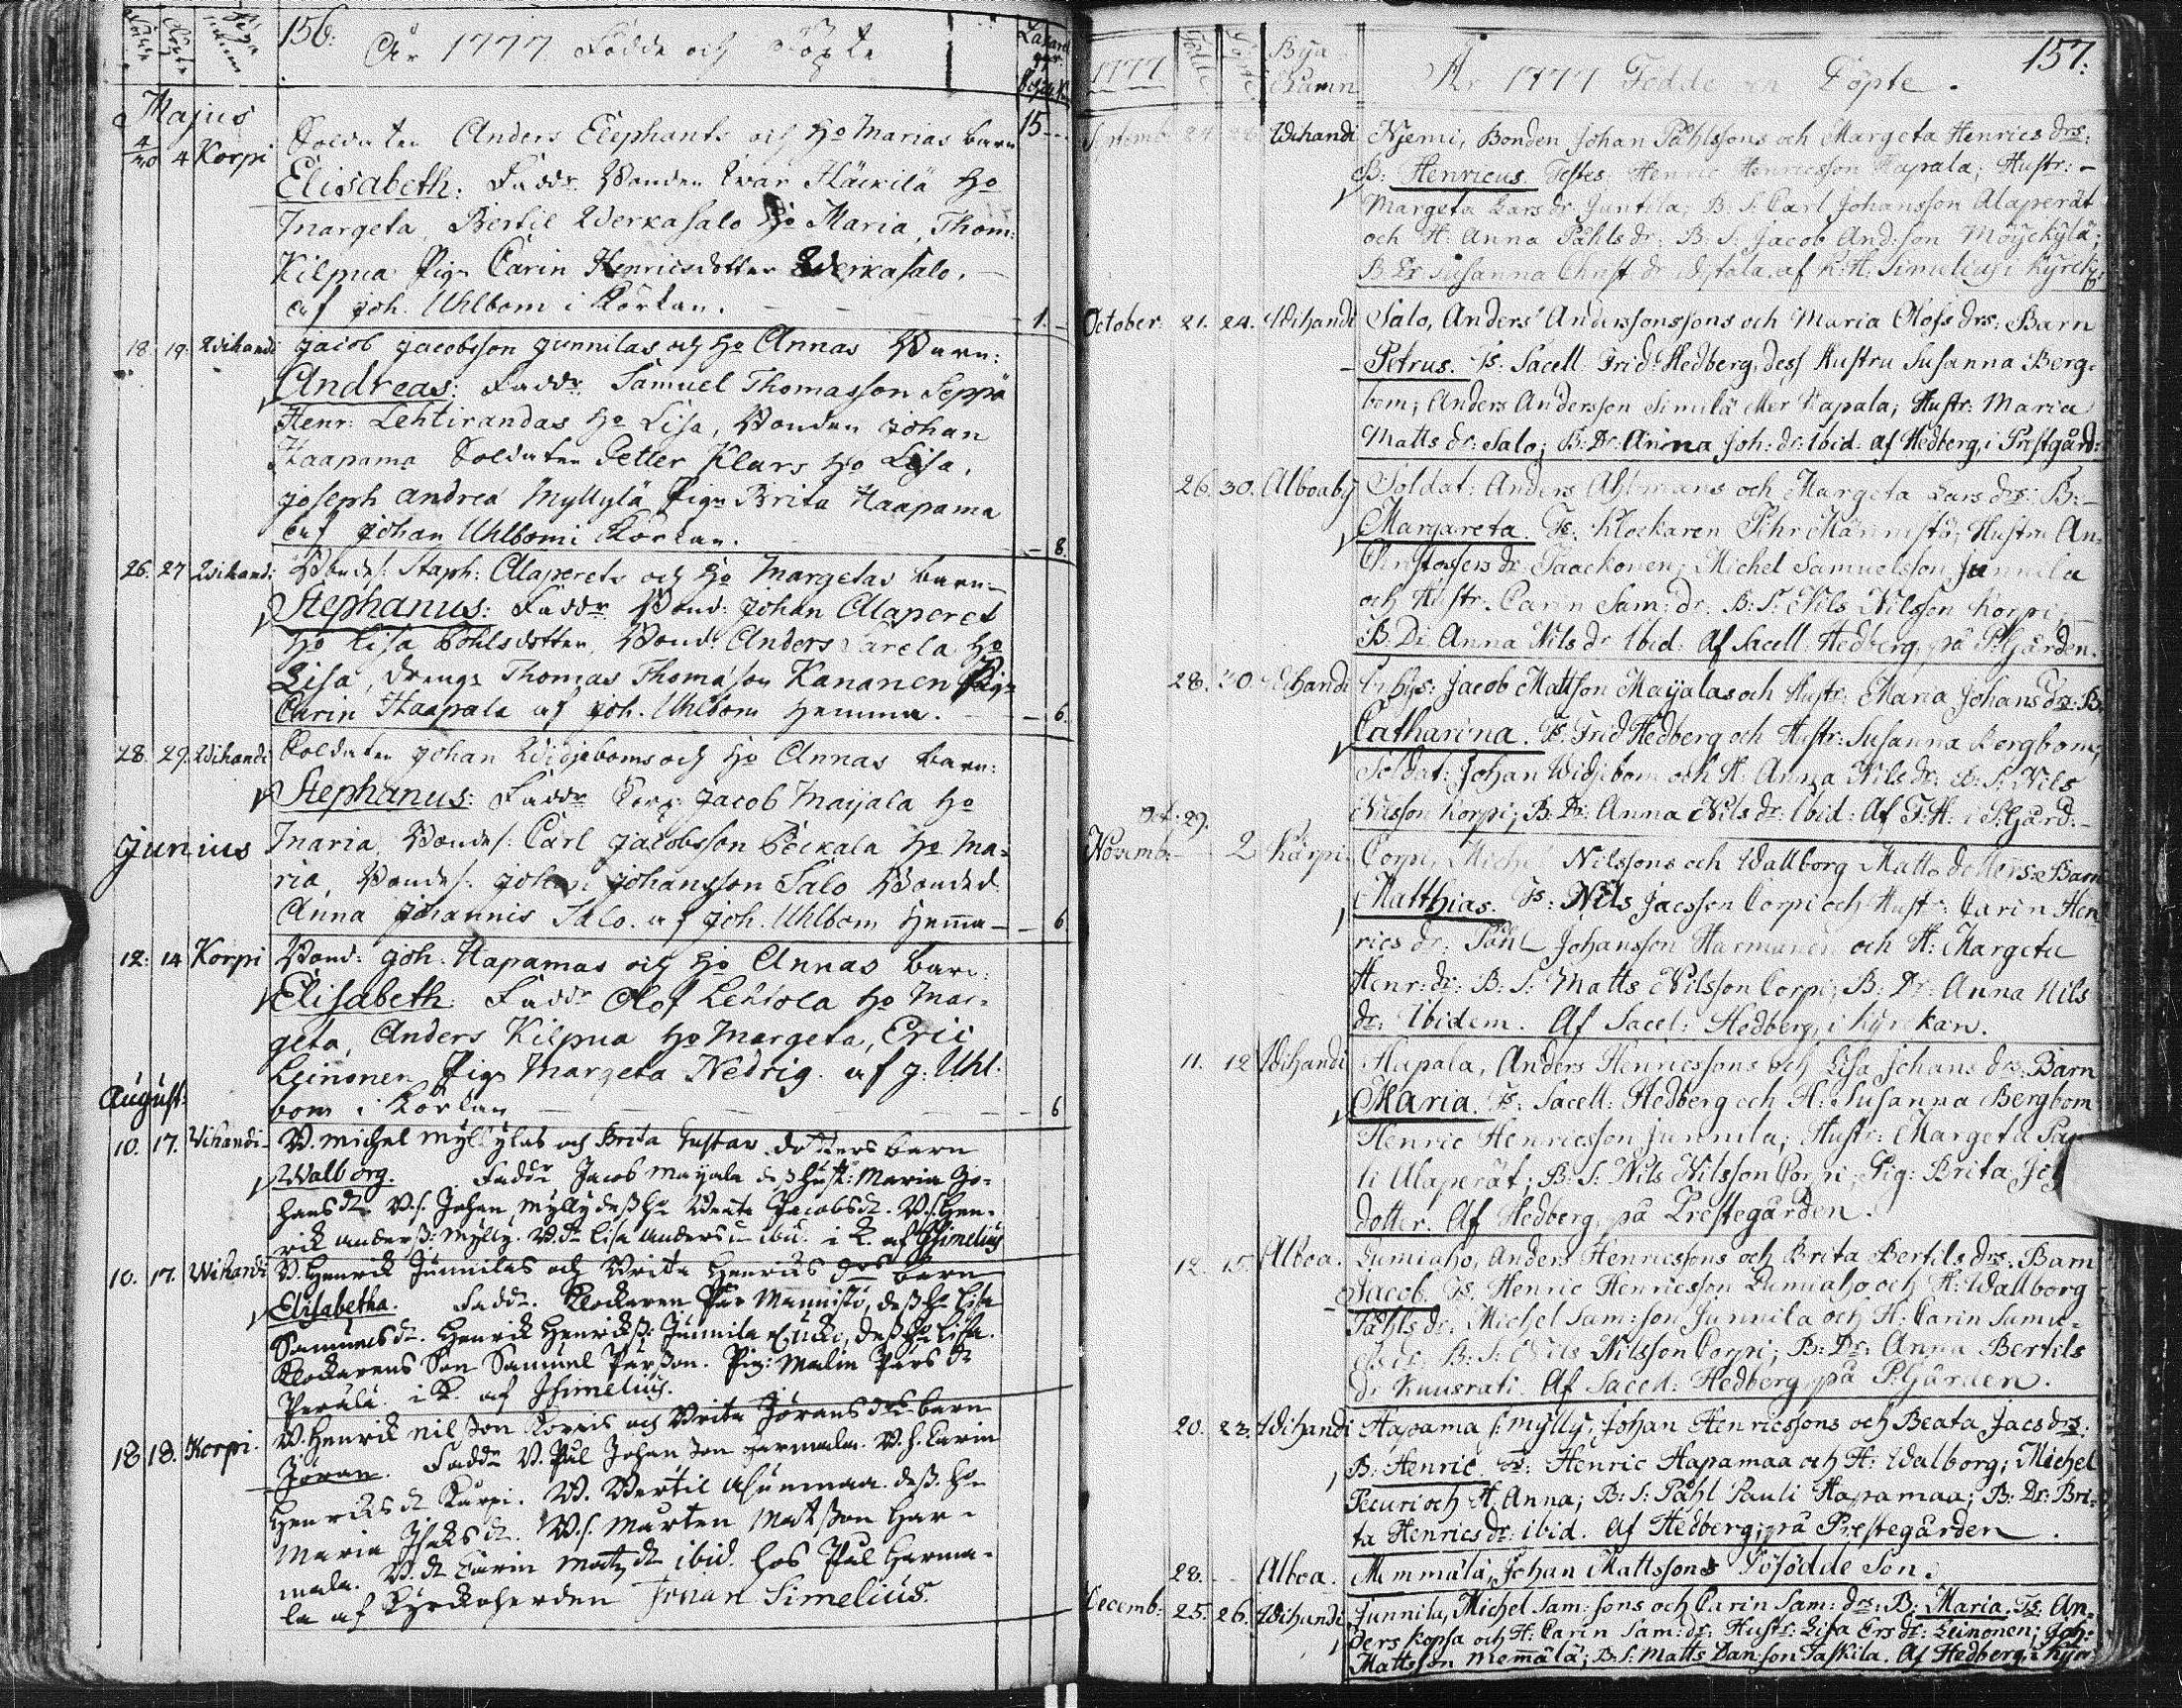 156.
År 1777 Födde och Döpte
Majus
15
4 Korpi Soldaten Anders Elephants och Ho Marias barn
Elisabeth: Faddr Bonden Ivar Häickilä Ho
Margeta, Bertil Werkasalo Ho Maria, Thom:
Kilpua Pign Carin Henricsdotter Werkasalo.
af Joh. Uhlbom i Körkan. 1.
18. 19. Wihandi Jacob Jacobsson Junnilas och Ho Annas Barn:
Andreas: Faddr Samuel Thomasson Seppä
Henr: Lehtirandas Ho Lisa, Bonden Johan
Haapama Soldaten Petter Klars Ho Lisa,
Joseph Andrea Myllylä Pign Brita Haapama
af Johan Uhlbom i Körkan. 8.
26. 27 Wihand: Staph: Alaperets och Ho Margetas barn
Stephanus: Faddr Bond: Johan Alaperet
Ho Lisa Pohlsdotter, Bond: Anders Ho
Lisa, Drengn Thomas Thomasson Kananen Pign
Carin Haapala af Joh. Uhlbom Hemma. 6.
28. 29. Wihandi Soldaten Johan Widjeboms och Ho Annas barn:
Stephanus: Faddr Corp: Jacob Maijala Ho
Junius Maria, Bondes: Carl Jacobsson Ho Ma-
ria, Bondes: Johan Johansson Salo Bonded
Anna Johannis Salo. af Joh. Uhlbom Hemma 6
12: 14 Korpi Bond: Joh. Hapamas och Ho Annas barn:
Elisabeth: Faddr Olof Lehtola Ho Mar-
geta, Anders Kilpua Ho Margeta, Eric
Leinonen Pign Margeta Nedrig. af J: Uhl-
August:
bom i Körkan 6
10. 17. Wihandi B. Michel Myllylas och Brita Gustav dotters barn
Walborg. Faddr Jacob Mayala dess Hust: Maria Jo-
hans dr. B.s. Johan Mylly dess Ho Beata Jacobs dr. B.s. Hen-
rik Anderss: Mylly. B.dr Lisa Anders dr ibid. i K. af JSimelius
10. 17. Wihandi B. Henrik Junnilas och Brita Henriks drs barn
Elisabetha. Faddr. Klockaren Pär Mannistö, dess Ho Lisa
Samuels dr. Henrik Henrikss: Junnila dess Ho Lisa.
Klockarens Son Samuel Pärsson. Pig: Malin Pärs dr
Perälä. i K. af JSimelius.
18 18. Korpi. B. Henrik Nilsson Korpis och Brita Jörans drs barn
Jöran. Faddr B. Pål Johansson Harmala. B. h. Carin
Henriks dr Kårpi. B. Bertil Ahunmaa. dess Ho
Maria Isaks dr. B.s. Mårten Matsson Har-
mala. B. dr Carin Mats dr ibid. hos Pål Harma-
la af Kyrckoherden Jonan Simelius.
157:
1777 Födde Döpte Bya Namn
Ar 1777 Födde och Döpte.
Septemb: Wihandi Njemi, Bonden Johan Påhlssons och Margeta Henrics drs:
B: Henricus. Testes Henric Henricsson Hapala; Hustr:
Margeta Lars dr Juntila; B: S: Carl Johansson Alaperät
och H: Anna Påhls dr: B: S: Jacob And:son Möyckylä;
B: Dr Susanna Christ: dr af K: H: Simelius i Kyrck:
October: 21. 24. Wihandi Salo, Anders Anderssonssons och Maria Olofs drs: Barn
Petrus. Ts: Sacell: Frid: Hedberg, dess Hustru Susanna Berg-
bom; Anders Andersson Similä eller Hapala; Hustr: Maria
Matts dr: Salo; B: Dr: Anna Joh: dr: ibid. af Hedberg, i Prestgård:
26. 30. Alboaby Soldat: Anders Ahlmans och Margeta Lars drs: B:
Margareta. Ts: Klockaren Pehr Männistö, Hustru An-
Christoffers dr: Paackonen; Michel Samuelsson Junnila
och Hustr: Carin Sam: dr: B: S: Nils Nilsson Korpi;
B: Dr Anna Nils dr Ibid: Af Sacell: Hedberg, på P:Gården.
28. 30. Wihandi Jacob Mattson Maijalas och Hustr: Maria Johans drs: B:
Catharina. Ts: Frid Hedberg och Hustr: Susanna Bergbom;
Soldat: Johan Widjebom och H: Anna Nils dr: B: S: Nils
Nilsson Korpi; B: Dr: Anna Nils dr: Ibid: Af F: H: i P:Gård.
Oct. 29.
Novemb: 2 Kårpi: Corpi, Michel Nilssons och Wallborg Matts dotters: Barn
Matthias. Ts: Nils Jacsson Corpi och Hustr: Carin Hen-
rics dr: Påhl Johansson Harmanen och H: Margeta
Henr: dr: B: S: Matts Nilsson Corpi; B: Dr: Anna Nils
dr: Ibidem. Af Sacel: Hedberg, i Kyrckan.
11. 12 Wihandi Hapala, Anders Henricssons och Lisa Johans drs: Barn
Maria. Ts: Sacell: Hedberg och H: Susanna Bergbom
Henric Henricsson Junnila; Hustr: Margeta
Alaperät; B: S: Nils Nilsson Corpi; Pig: Brita
dotter. Af Hedberg, på Prestegården.
12. 15. Alboa. Lumiaho, Anders Henricssons och Brita Bertils drs: Barn
Jacob. Ts: Henric Henricsson Lumiaho och H: Wallborg
Påhls dr: Michel Sam:son Junnila och H: Carin Samu-
els dr: B: S: Nils Nilsson Corpi; B: Dr: Anna Bertils
dr Kuusrati. Af Sacell: Hedberg, på P:Gården.
20. 22. Wihandi Hapama l: Mylly, Johan Henricssons och Beata Jacs drs:
B: Henric. Ts: Henric Hapamaa och H: Walborg; Michel
Pecuri och H: Anna; B: S: Påhl Pauli Hapamaa; B: Dr: Bri-
ta Henrics dr: ibid. Af Hedberg, på Prestegården.
28. Alboa. Memmälä, Johan Mattssons Dösödde Son.
Decemb: 25. 26. Wihandi Junnila, Michel Sam:sons och Carin Sam: drs: B: Maria. Ts: An-
ders Kopsa och H: Carin Sam: dr: Hustr: Lisa Ers dr: Leinonen; Joh:
Mattsson Memmälä; B: S: Matts Dan:son Taskila. Af Hedberg, i Kyr: